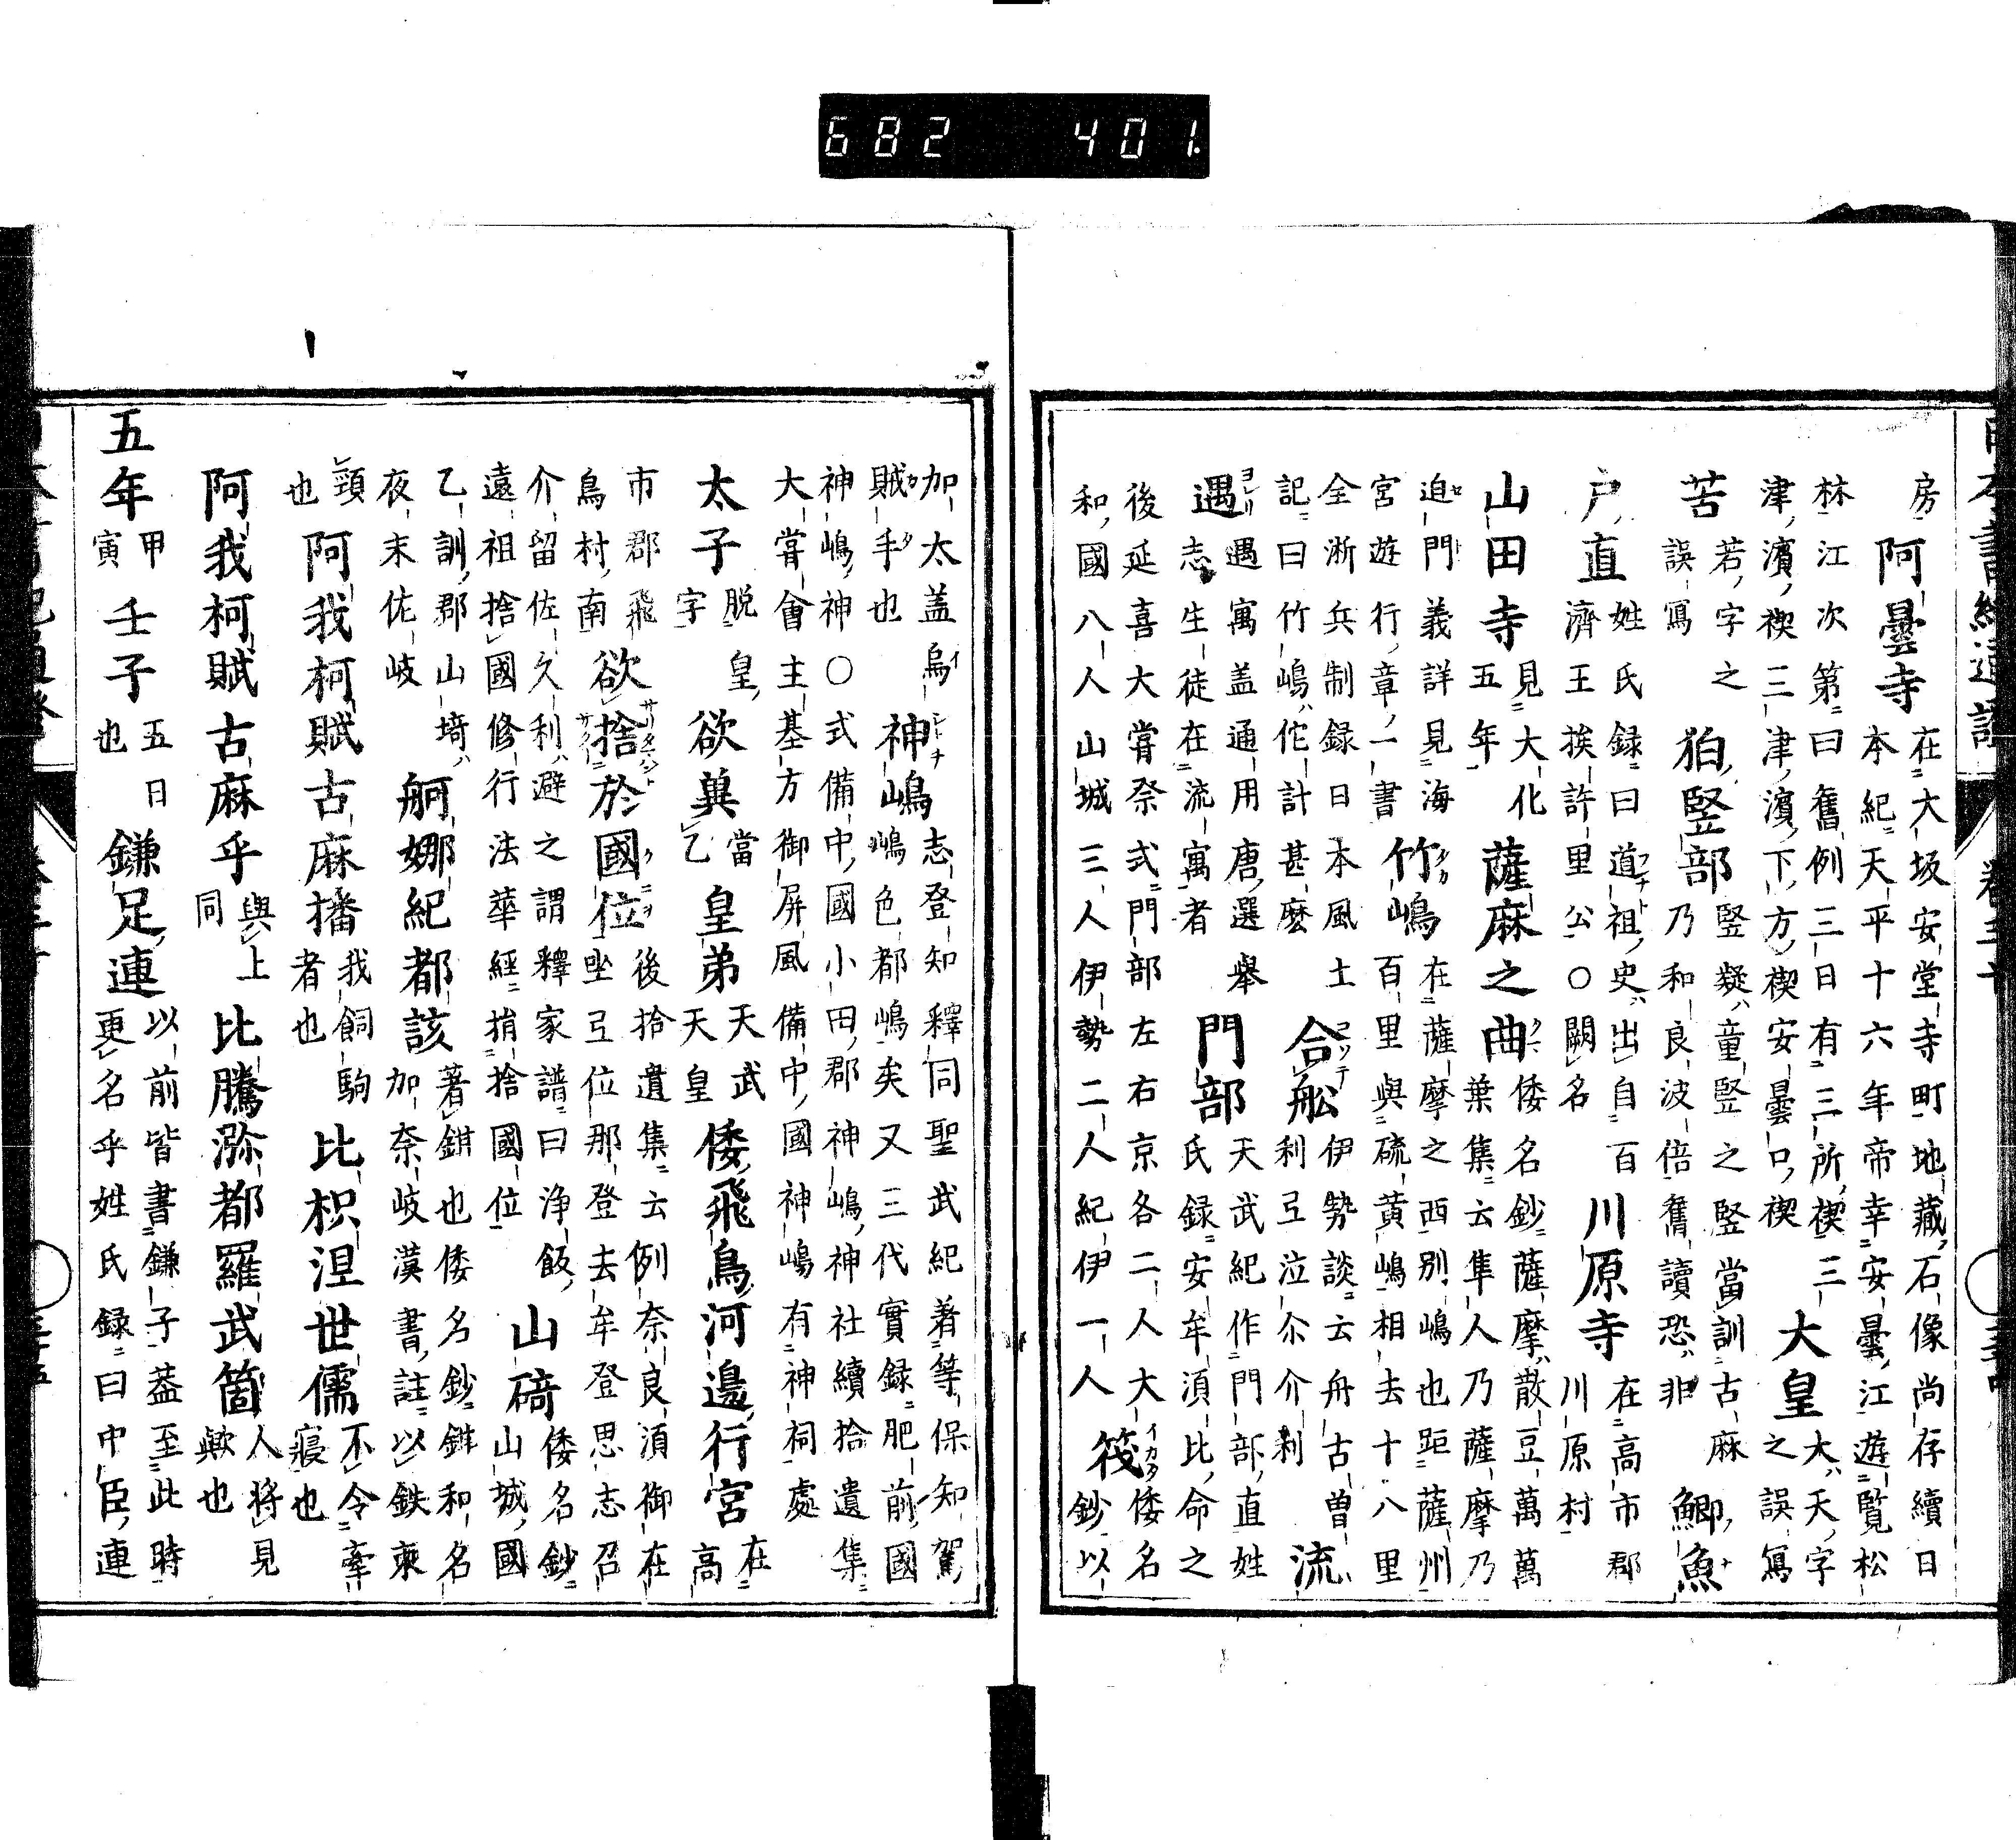 房 阿曇寺 在大坂安堂寺町地藏石像尚存續日
本紀天平十六年帝幸安曇江遊覽松
林江次第曰舊例三日有三所禊三
津濱禊三津濱下方禊安曇口禊 大皇 大天字
之誤寫
苦 若字之
誤寫 狛竪部 竪疑童竪之竪當訓古麻
乃和良波倍舊讀恐非 鯽魚
戸直 姓氏録曰道祖史出自百
濟王挨許里公○闕名 川原寺 在高市郡
川原村
山田寺 見大化
五年 薩麻之曲 倭名鈔薩摩散豆萬萬
葉集云隼人乃薩摩乃
迫門義詳見海
宮遊行章一書 竹嶋 在薩摩之西別嶋也距薩州
百里與硫黄嶋相去十八里
全淅兵制録日本風土
記曰竹嶋佗計甚麽 合舩 伊勢談云舟古曽
利弖泣尒介利 流
遇 遇寓盖通用唐選舉
志生徒在流寓者 門部 天武紀作門部直姓
氏録安牟湏比命之
後延喜大甞祭式門部左右京各二人大
和國八人山城三人伊勢二人紀伊一人 筏 倭名
鈔以
加太盖烏
賊手也 神嶋 志登知釋同聖武紀著等保知駕
嶋色都嶋矣又三代實録肥前國
神嶋神○式備中國小田郡神嶋神社續拾遺集
大甞會主基方御屏風備中國神嶋有神祠處
太子 脱皇
字 欲奠 當
乙 皇弟 天武
天皇 倭飛鳥河邊行宮 在高
市郡飛
鳥村南 欲捨於國位 後拾遺集云例奈良湏御在
坐弖位那登去牟登思志召
介留佐久利避之謂釋家譜曰浄飯
遠祖捨國修行法華經捐捨國位 山碕 倭名鈔
山城國
乙訓郡山埼
夜末佐岐 舸娜紀都該 著鉗也倭名鈔鉗和名
加奈岐漢書註以鉄束
頸
也 阿我柯賦古麻播 我飼駒
者也 比枳涅世儒 不令牽
寢也
阿我柯賦古麻乎 與上
同 比騰瀰都羅武箇 人將見
歟也
五年 甲
寅 壬子 五日
也 鎌足連 以前皆書鎌子盖至此時
更名乎姓氏録曰中臣連